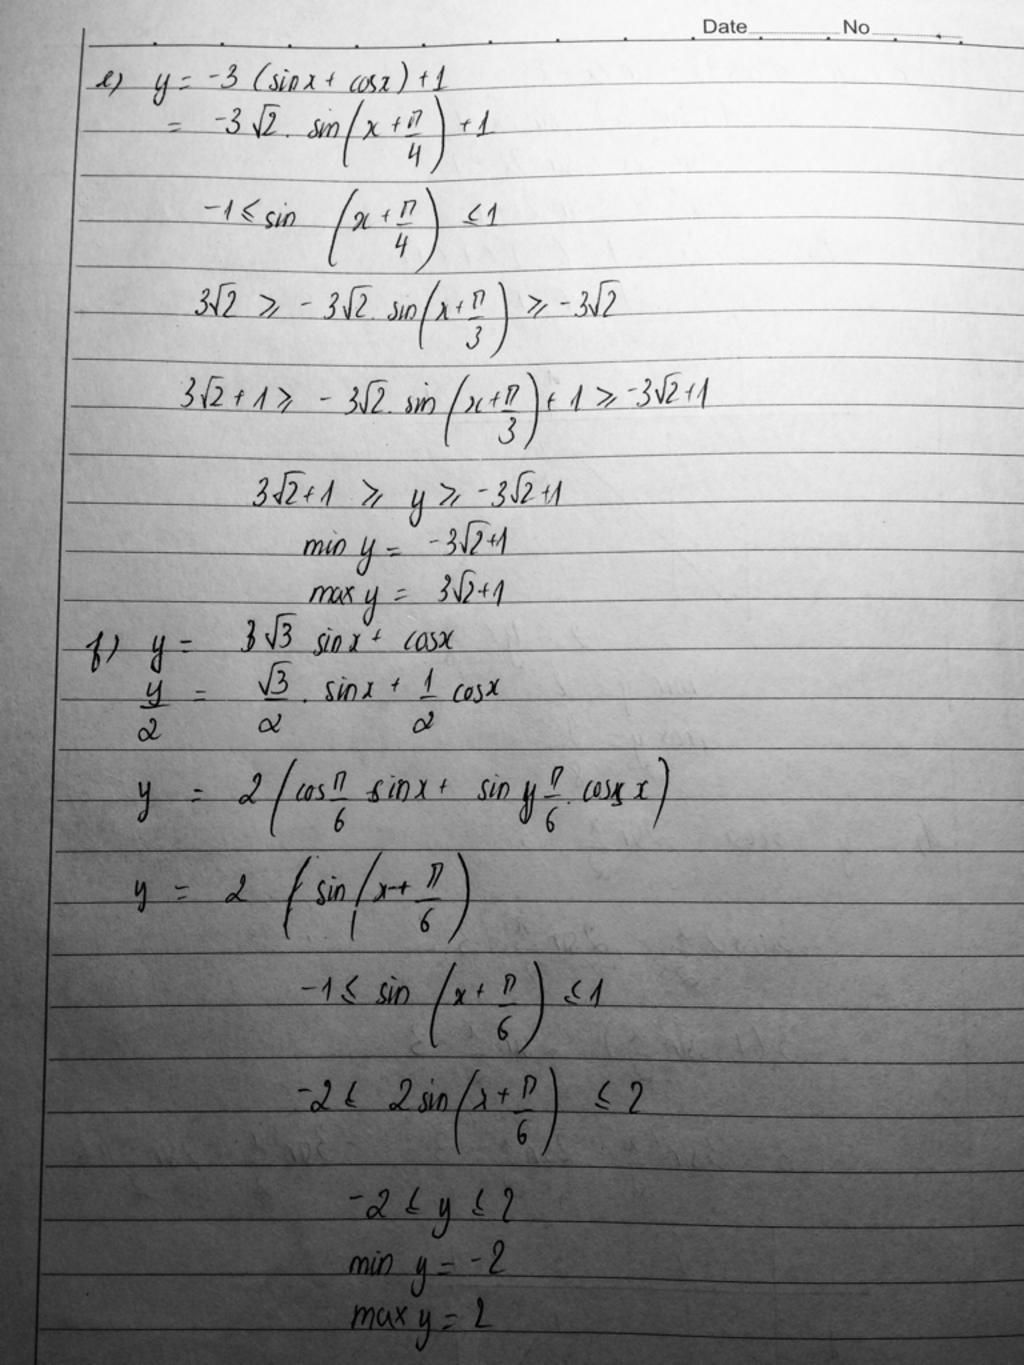 Date No
e) y = -3 (sinx + cosx) + 1
= -3√2. sin(x + π/4) + 1
-1 ≤ sin (x + π/4) ≤ 1
3√2 ≥ - 3√2. sin(x + π/3) ≥ -3√2
3√2 + 1 ≥ - 3√2. sin(x + π/3) + 1 ≥ -3√2+1
3√2+1 ≥ y ≥ -3√2+1
min y = -3√2+1
max y = 3√2+1
f) y = √3 sinx + cosx
y/2 = √3/2 . sinx + 1/2 cosx
y = 2 (cos π/6 sinx + sin π/6. cos x)
y = 2 (sin(x + π/6)
-1 ≤ sin (x + π/6) ≤ 1
-2 ≤ 2sin(x + π/6) ≤ 2
-2 ≤ y ≤ 2
min y = -2
max y = 2